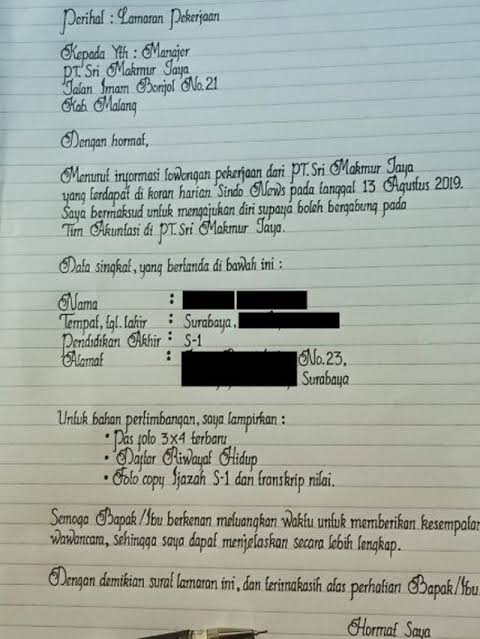 Perihal : Lamaran Pekerjaan
Kepada Yth : Manajer
PT. Sri Makmur Jaya
Jalan Imam Bonjol No. 21
Kab. Malang
Dengan hormat,
Menurut informasi lowongan pekerjaan dari PT. Sri Makmur Jaya
yang terdapat di koran harian Sindo News pada tanggal 13 Agustus 2019.
Saya bermaksud untuk mengajukan diri supaya boleh bergabung pada
Tim Akuntasi di PT. Sri Makmur Jaya.
Data singkat, yang bertanda di bawah ini :
Nama :
Tempat, tgl. lahir : Surabaya,
Pendidikan Akhir : S-1
Alamat : No. 23,
Surabaya
Untuk bahan pertimbangan, saya lampirkan :
• Pas foto 3x4 terbaru
• Daftar Riwayat Hidup
• Foto copy Ijazah S-1 dan transkrip nilai.
Semoga Bapak/Ibu berkenan meluangkan waktu untuk memberikan kesempatan
wawancara, sehingga saya dapat menjelaskan secara lebih lengkap.
Dengan demikian surat lamaran ini, dan terimakasih atas perhatian Bapak/Ibu
Hormat Saya